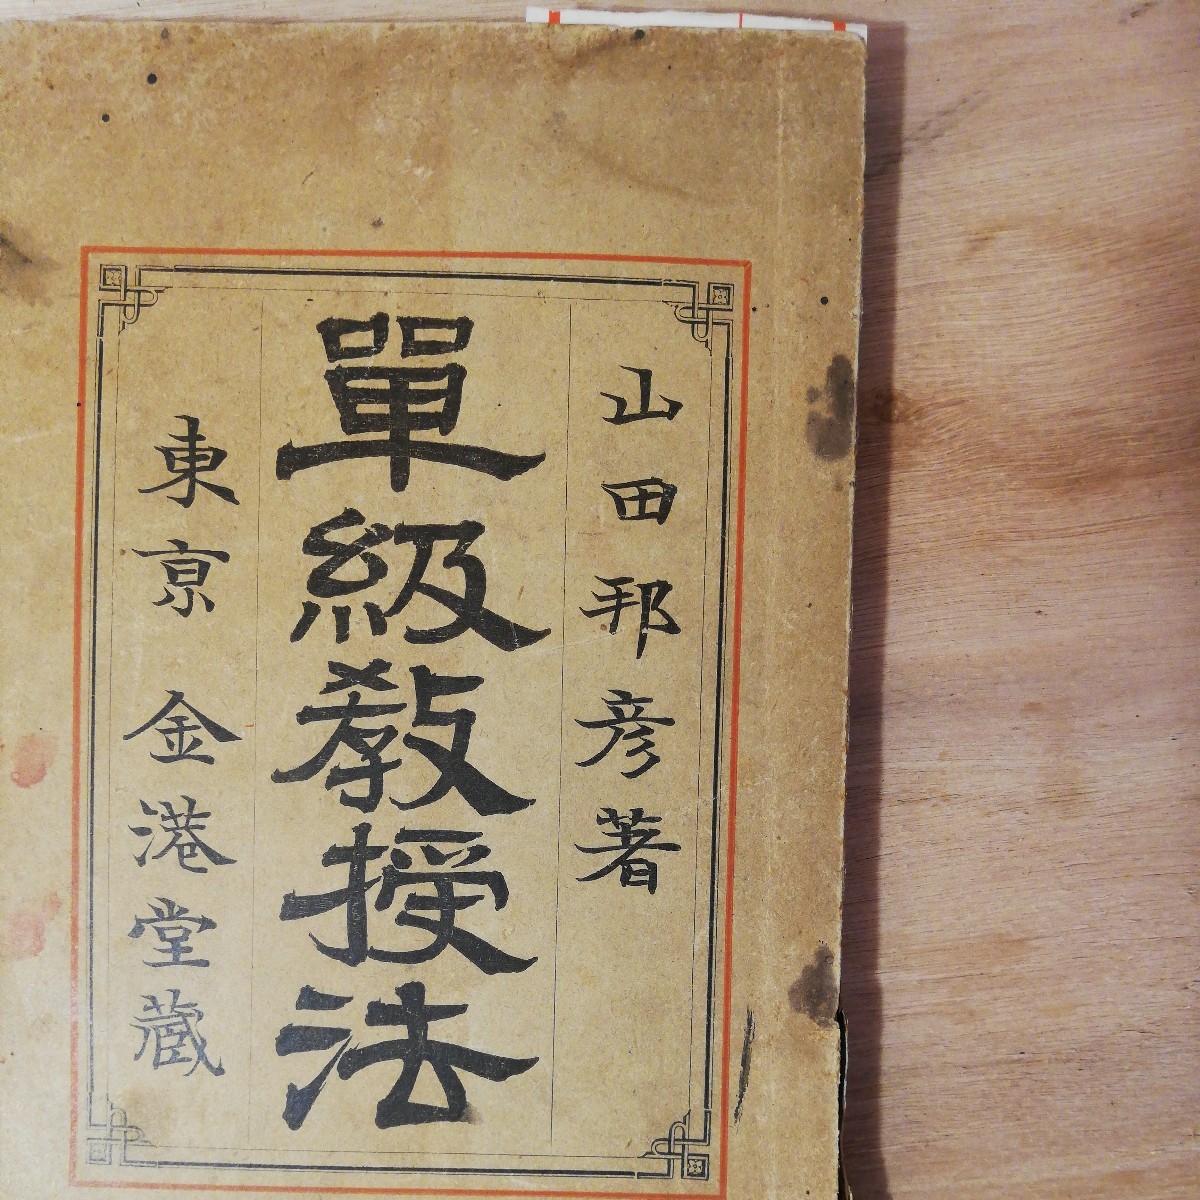 山田邦彦著
單級敎授法
東京 金港堂藏